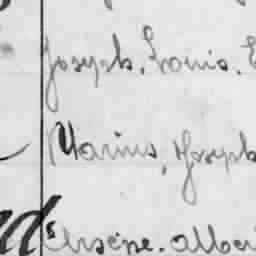 Joseph, Louis. E
Marius, Joseph
Arsène. Alber